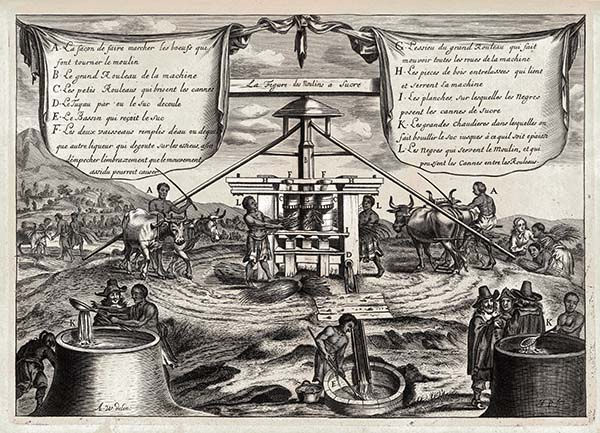 A - La façon de faire marcher les boeufs qui
font tourner le moulin
B Le grand Rouleau de la machine
C - Les petis Rouleaus qui brisent les cannes
D - Le Tuyau par ou le suc decoule
E - Le Bassin qui reçoit le suc
F - Les deux vaisseaus remplis d'eau ou de
que autre liqueur qui degoute sur les essieus, afin
d'empécher l'embrazement que le mouvement
assidu pourroit causer
La Figure des Moulins à Sucre
G - L'essieu du grand Rouleau qui fait
mouvoir toutes les roues de la machine
H - Les pieces de bois entrelassées qui lient
et serrent la machine
I - Les planches sur lesquelles les Negres
posent les cannes de sucre
K - Les grandes Chaudieres dans lesquelles on
fait bouillir le suc jusques à ce qu'il soit épaissi
L - Les Negres qui servent le Moulin, et qui
pressent les Cannes entre les Rouleaus.
A
A
L
B
F
F
L
D
K
K
A. W. delin.